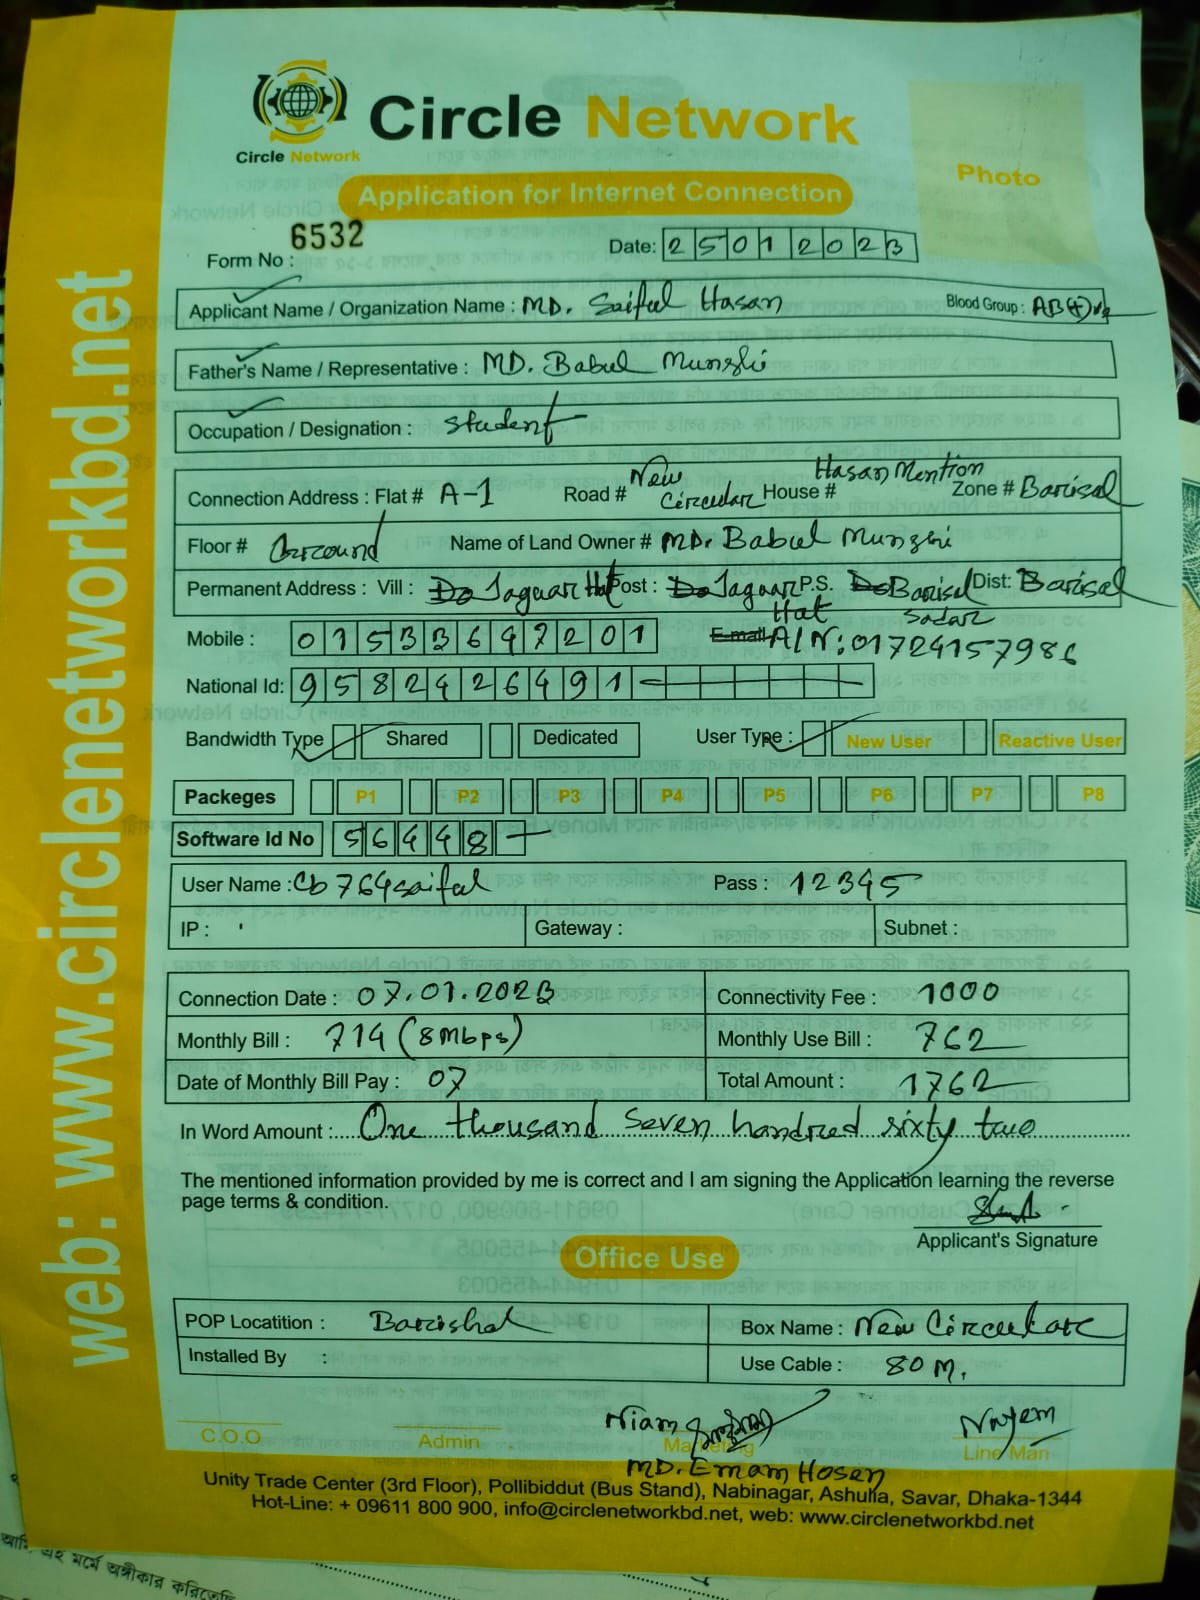 Circle Network
Circle Network
Photo
Application for Internet Connection
Form No : 6532
Date: 25012023
Applicant Name / Organization Name : MD. Saiful Hasan Blood Group : AB(+)ve
Father's Name / Representative : MD. Babul Munshi
Occupation / Designation : Student
Connection Address : Flat # A-1 Road # New Circular House # Hasan Mention Zone # Barisal
Floor # Ground Name of Land Owner # MD. Babul Munshi
Permanent Address : Vill : Do Jaguar Hat Post : Do Jaguar Hat P.S. Do Barisal Sadar Dist: Barisal
Mobile : 01533697201 E-mail A/N: 01724157986
National Id: 9582426491
Bandwidth Type Shared Dedicated User Type : New User Reactive User
Packeges P1 P2 P3 P4 P5 P6 P7 P8
Software Id No 56448
User Name : Cb764saiful Pass : 12345
IP : Gateway : Subnet :
Connection Date : 07.01.2023 Connectivity Fee : 1000
Monthly Bill : 714 (8Mbps) Monthly Use Bill : 762
Date of Monthly Bill Pay : 07 Total Amount : 1762
In Word Amount : One thousand seven handred sixty two
The mentioned information provided by me is correct and I am signing the Application learning the reverse
page terms & condition.
Applicant's Signature
Office Use
POP Locatition : Barishal Box Name : New Circular
Installed By : Use Cable : 80 M.
Niam Nayem
C.O.O Admin Marketing Line Man
MD. Emam Hosen
Unity Trade Center (3rd Floor), Pollibiddut (Bus Stand), Nabinagar, Ashulia, Savar, Dhaka-1344
Hot-Line: + 09611 800 900, info@circlenetworkbd.net, web: www.circlenetworkbd.net
web: www.circlenetworkbd.net
এই মর্মে অঙ্গীকার করিতেছি